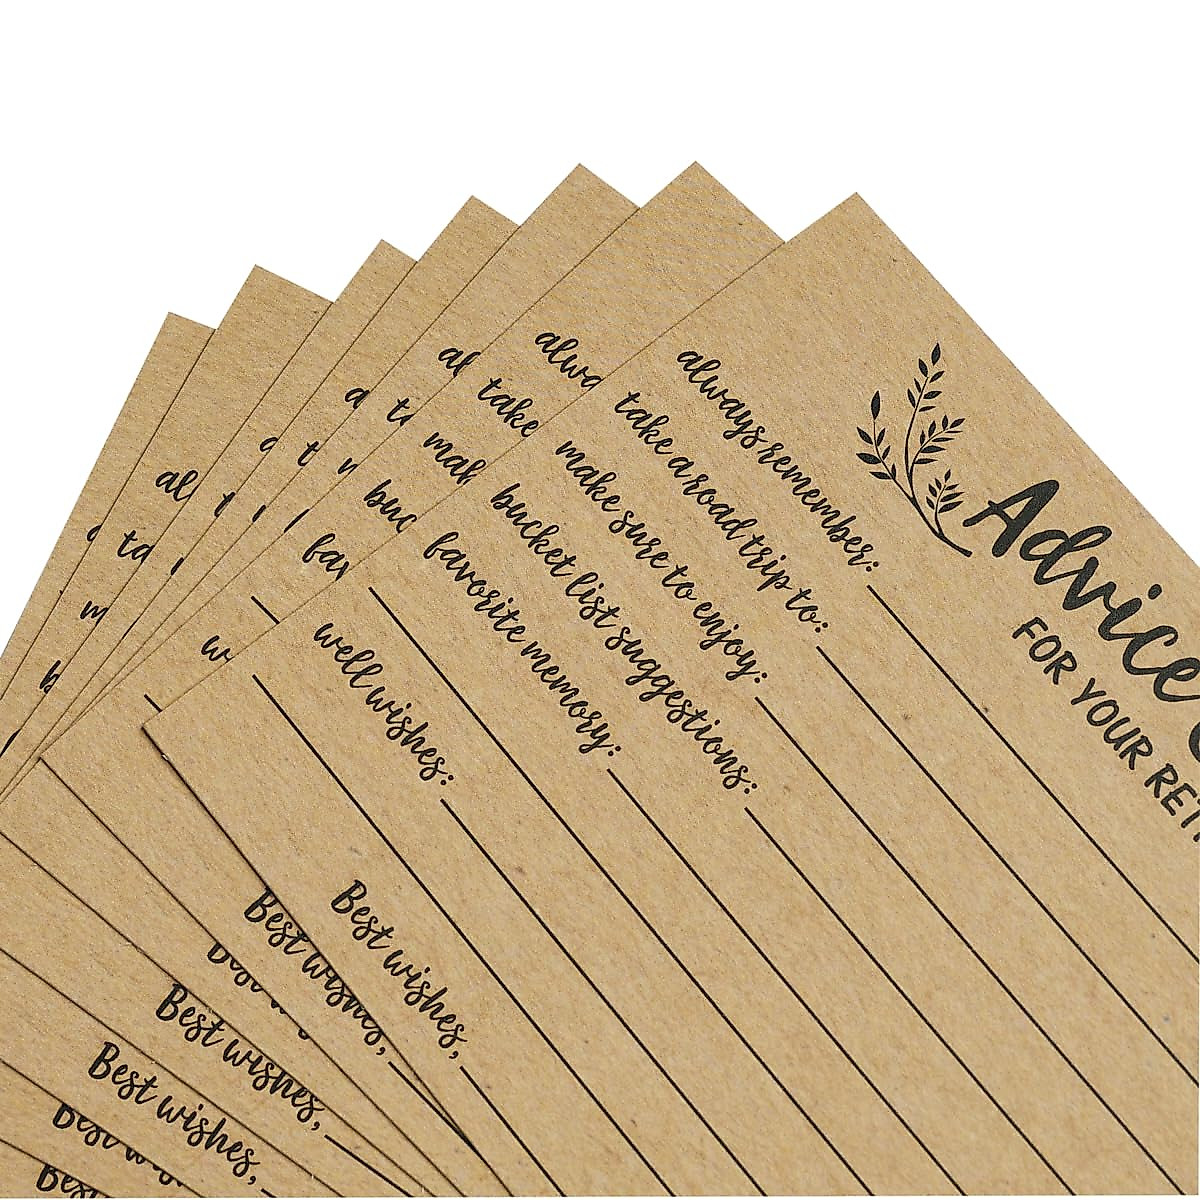 Advice
FOR YOUR RETI
always remember:
take a road trip to:
make sure to enjoy:
bucket list suggestions:
favorite memory:
well wishes:
Best wishes,
alwa
take
mak
buc
fav
w
Best wishes,
al
ta
Best wishes,
Best wishes,